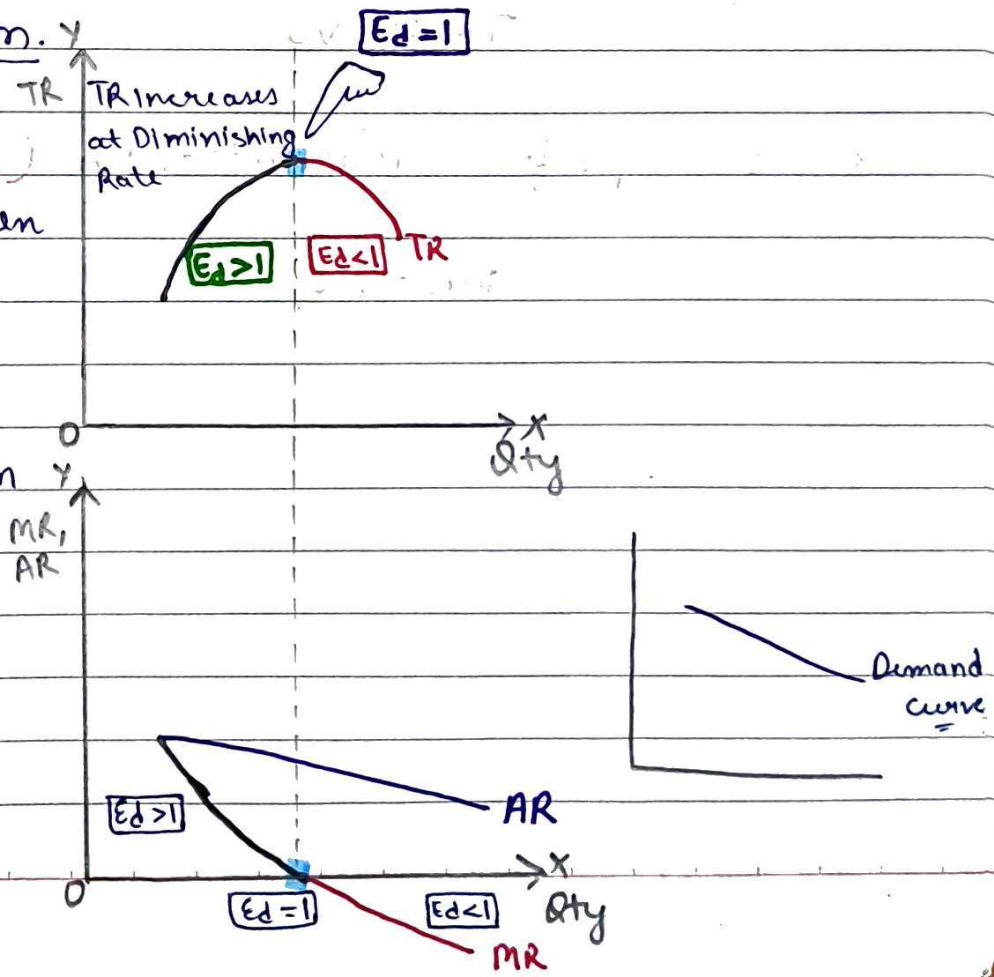 n.
Y
Ed = 1
TR
TR Increases
at Diminishing
Rate
en
Ed > 1
Ed < 1
TR
O
X
Qty
n
Y
MR,
AR
Demand
curve
Ed > 1
AR
O
X
Ed = 1
Ed < 1
Qty
MR